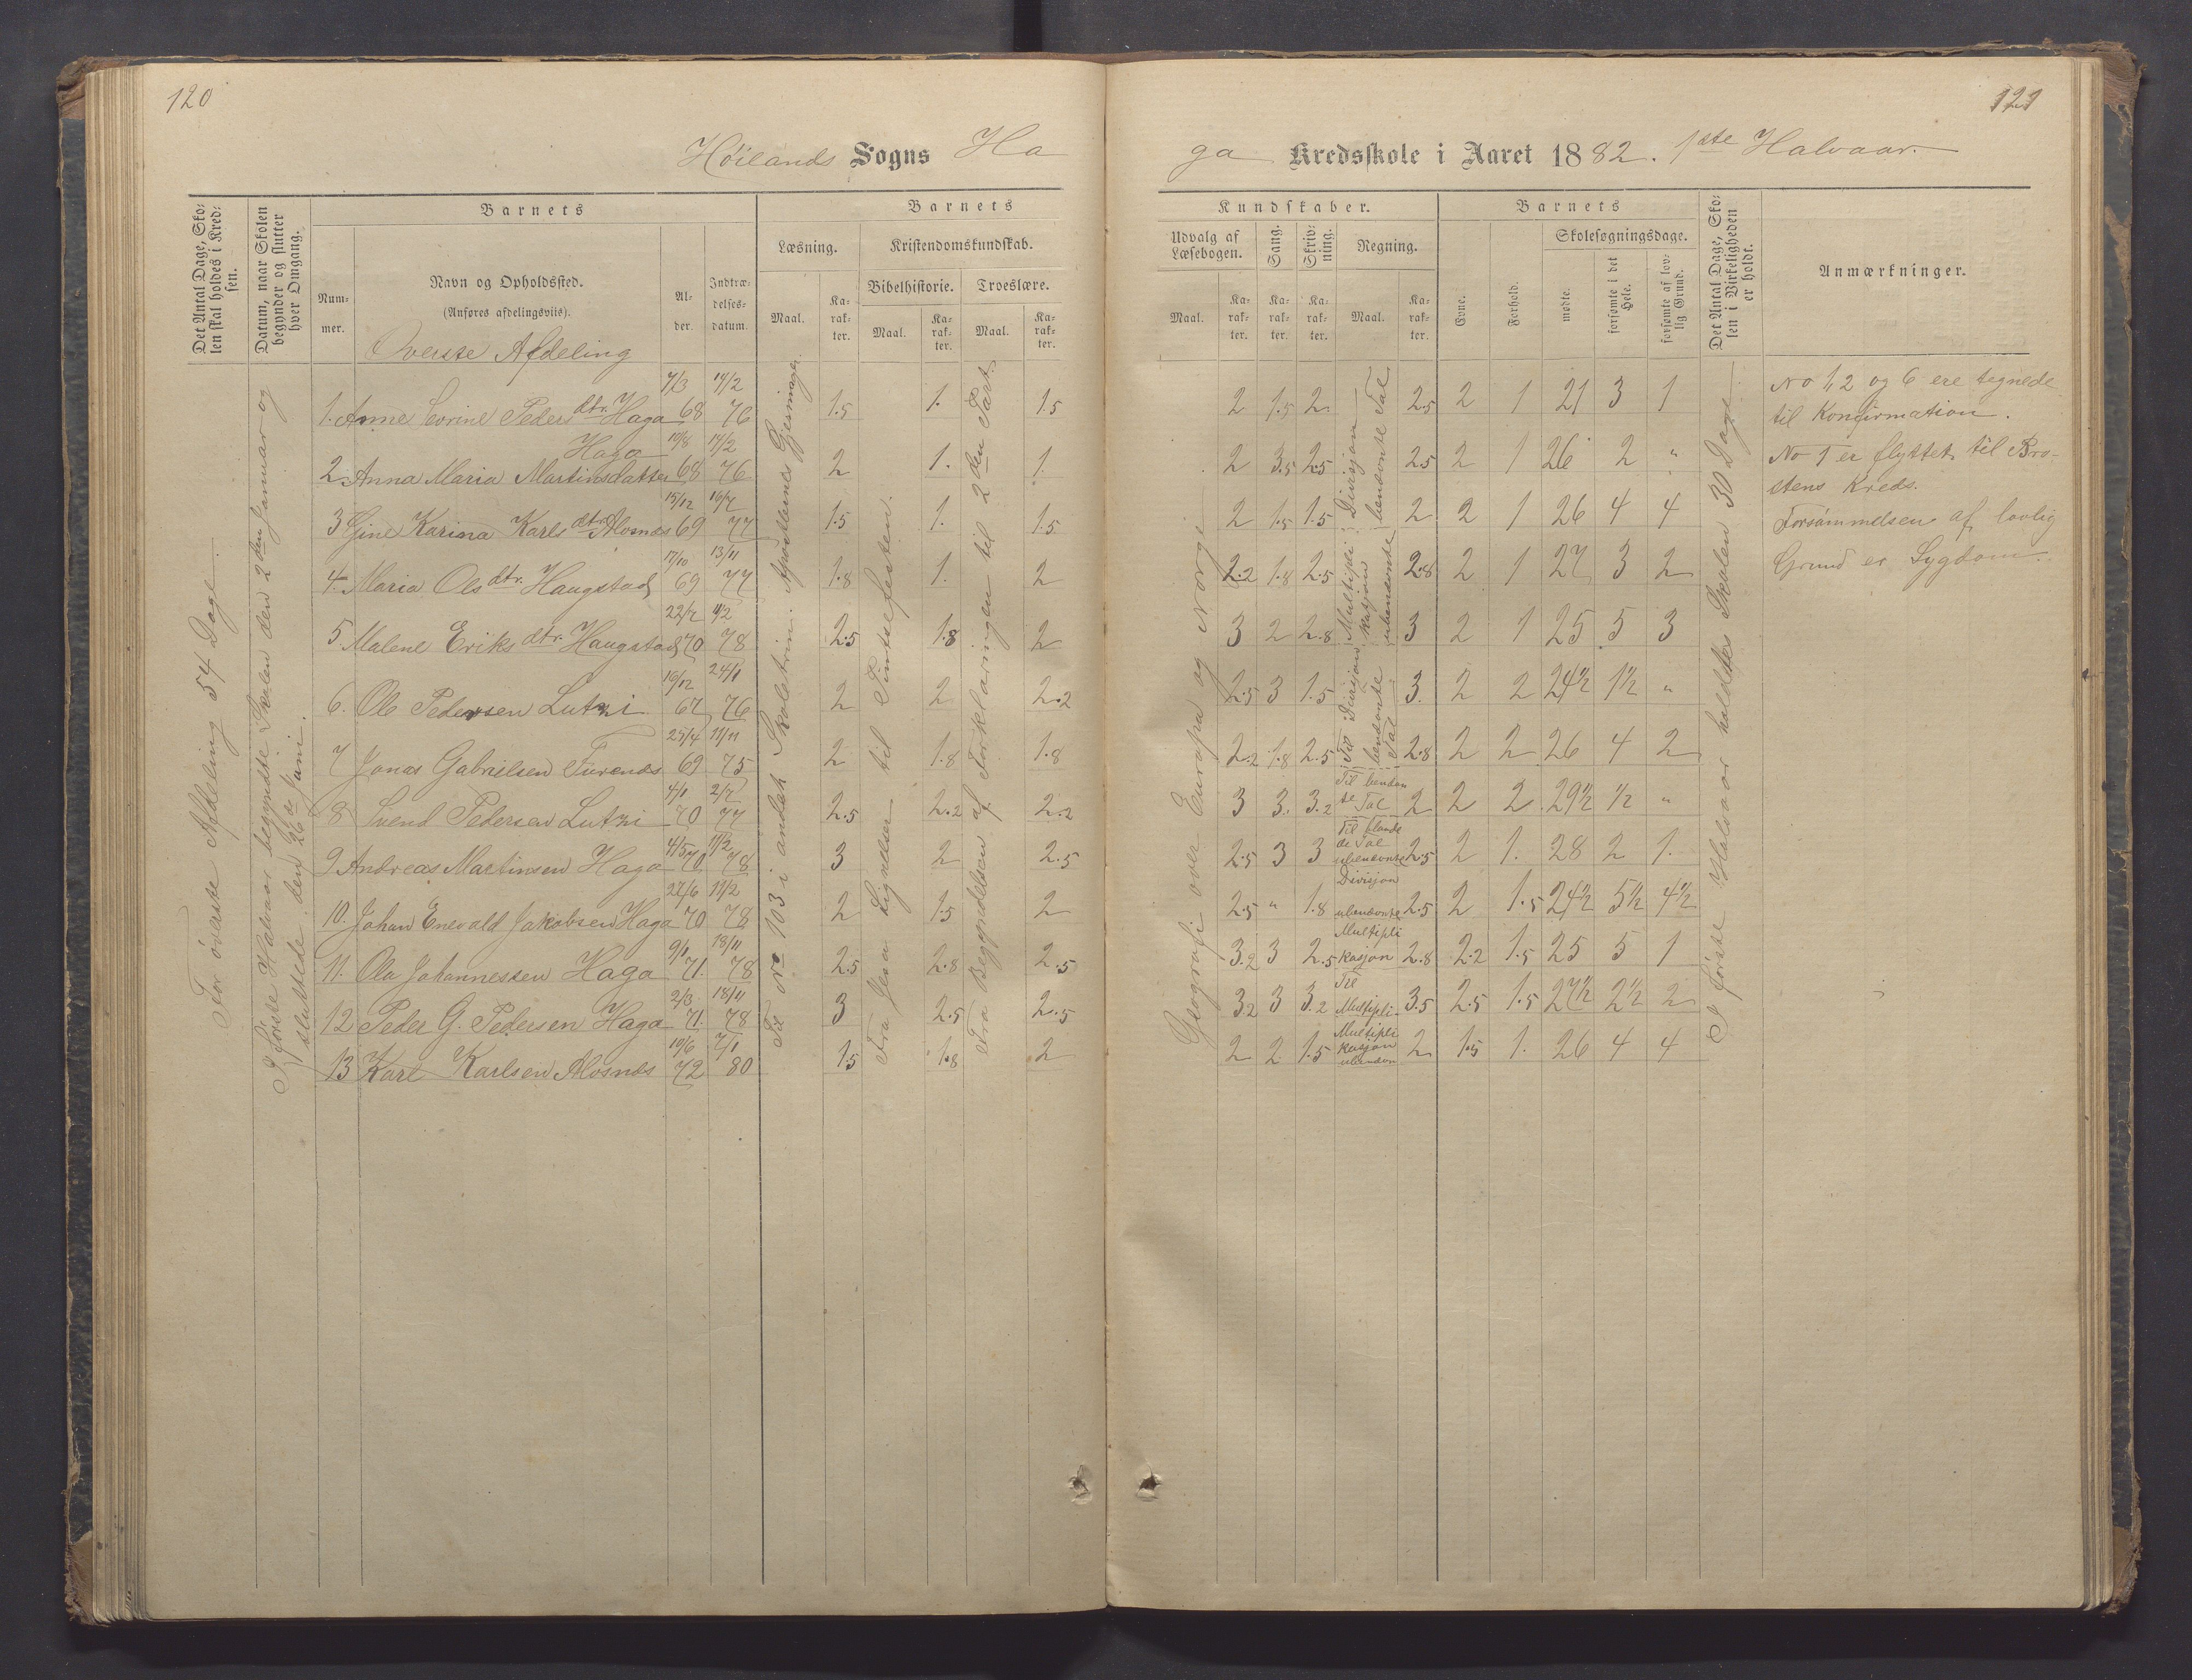 120
121
Høilands Sogns Ha
ga Kredsskole i Aaret 1882. 1ste Halvaar.
Det Antal Dage, Sko-
len skal holdes i Kred-
sen.
Datum, naar Skolen
begynder og slutter
hver Omgang.
Barnets
Num-
mer.
Navn og Opholdssted.
(Anføres afdelingsviis).
Al-
der.
Indtræ-
delses-
datum.
Barnets
Læsning.
Kristendomskundskab.
Bibelhistorie.
Troeslære.
Maal.
Ka-
rak-
ter.
Maal.
Ka-
rak-
ter.
Maal.
Ka-
rak-
ter.
Kundskaber.
Udvalg af
Læsebogen.
Sang.
Skriv-
ning.
Regning.
Maal.
Ka-
rak-
ter.
Ka-
rak-
ter.
Ka-
rak-
ter.
Maal.
Ka-
rak-
ter.
Barnets
Evne.
Forhold.
Skolesøgningsdage.
mødte.
forsømte i det
Hele.
forsømte af lov-
lig Grund.
Det Antal Dage, Sko-
len i Virkeligheden
er holdt.
Anmærkninger.
Øverste Afdeling
For øverste Afdeling 54 Dage.
I første Halvaar begyndte Skolen den 2den Januar og
sluttede den 26de Juni.
Til No 103 i andet Skoletrin. Apostlernes Gjerninger.
Fra Jesu Lignelser til Pintsefesten.
Fra Begyndelsen af Forklaringen til 2den Part.
Geografi over Europa og Norge
I første Halvaar holdtes Skolen 30 Dage
7/3 14/2
1. Anne Serine Pedersdtr. Haga 68 76 1.5 1. 1.5 2 1.5 2 2.5 2 1 21 3 1
Haga 19/8 14/2
2 Anna Maria Martinsdatter 68 76 2 1. 1. 2 3.5 2.5 2.5 2 1 26 2 "
15/12 16/7
3 Gine Karina Karlsdtr. Alvsnes 69 77 1.5 1. 1.5 2 1.5 1.5 2 2 1 26 4 4
17/10 13/11
4 Maria Olsdtr. Haugstad 69 77 1.8 1. 2 2.2 1.8 2.5 2.8 2 1 27 3 2
22/7 11/2
5 Malene Eriksdtr. Haugstad 70 78 2.5 1.8 2 3 2 2.8 3 2 1 25 5 3
16/12 24/1
6. Ole Pedersen Lutsi 67 76 2 2 2.2 2.5 3 1.5 3. 2 2 24½ 1½ "
25/4 11/11
7 Jonas Gabrielsen Furenes 69 75 2 1.8 1.8 2.2 1.8 2.5 2.8 2 2 26 4 2
4/1 2/7
8 Svend Pedersen Lutsi 70 77 2.5 2.2 2.2 3 3. 3.2 2 2 2 29½ ½ "
4/5 11/2
9 Andreas Martinsen Haga 70 78 3 2 2.5 2.5 3 3 2.5 2 1. 28 2 1.
27/6 11/2
10. Johan Enevald Jakobsen Haga 70 78 2 1.5 2 2.5 " 1.8 2.5 2 1.5 24½ 5½ 4½
9/1 18/11
11. Ola Johannessen Haga 71. 78 2.5 2.8 2.5 3.2 3 2.5 2.8 2.2 1.5 25 5 1
2/3 18/11
12 Peder G. Pedersen Haga 71. 78 3 2.5 2.5 3.2 3 3.2 3.5 2.5 1.5 27½ 2½ 2
10/6 7/1
13 Karl Karlsen Alvsnes 72 80 1.5 1.8 2 2 2 1.5 2 1.5 1. 26 4 4
Divisjon
benævnte Tal
Multipli
kasjon
ubenævnte
Til Divisjon
benævnte
Tal
Til benævn
te Tal
Til blande
de Tal
ubenævnte
Divisjon
ubenævnte
Multipli
kasjon
Til
Multipli-
Multipli
kasjon
ubenævn
No 1, 2 og 6 ere tegnede
til Konfirmation.
No 1 er flyttet til Bro-
stens Kreds.
Forsømmelsen af lovlig
Grund er Sygdom.